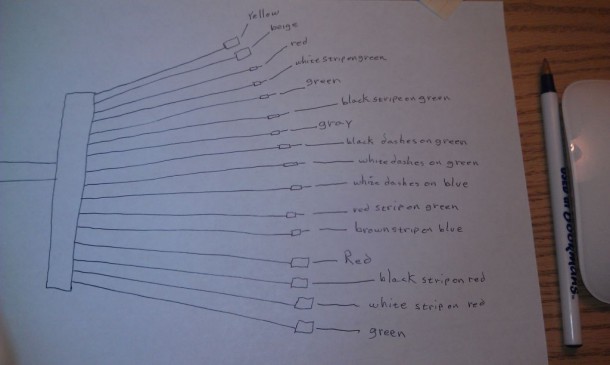 yellow
beige
red
white strip on green
green
black stripe on green
gray
black dashes on green
white dashes on green
white dashes on blue
red strip on green
brown strip on blue
Red
black strip on red
white strip on red
green